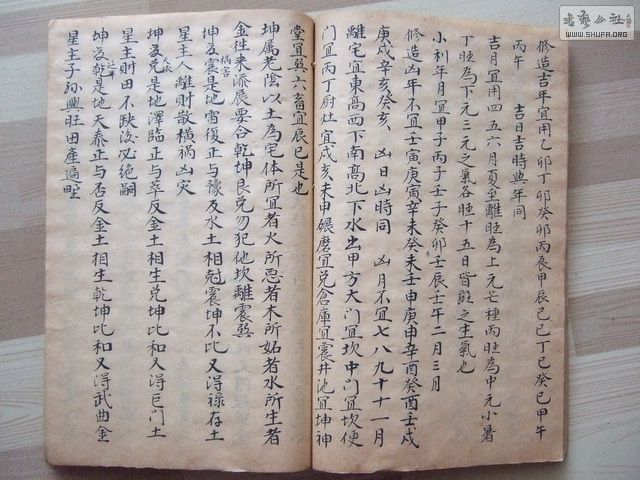 修造吉年宜用乙卯丁卯癸卯丙辰甲辰己巳丁巳癸巳甲午
丙午　吉日吉時與年同
吉月宜用四五六月夏至離旺為上元芒種丙旺為中元小暑
丁旺為下元三元之氣各旺十五日皆艮之生氣也
小利年月宜甲子丙子壬子癸卯壬辰壬午二月三月
修造凶年不宜壬寅庚寅辛未癸未壬申庚申辛酉癸酉壬戌
庚戌辛亥癸亥　凶日凶時同　凶月不宜七八九十十一月
離宅宜東高西下南高北下水出甲方大門宜坎中門宜坎便
門宜丙丁厨灶宜戌亥未申碾磨宜兑倉庫宜震井池宜坤神
堂宜巽六畜宜辰巳是也
坤属老陰以土為宅体所宜者火所忌者木所妬者水所生者
金往来添辰要合乾坤艮兑勿犯他坎離震巽
坤爻震是地雷復正与豫反木土相尅震坤不比又得禄存土
禍害
星主人離財散横禍凶灾
坤爻兑是地澤臨正与萃反金土相生兑坤比和又得巨門土
天医
星主財田不缺後必绝嗣
坤爻乾是地天泰正与否反金土相生乾坤比和又得武曲金
延年
星主子孫興旺田產遍野
書藝公社
WWW.SHUFA.ORG